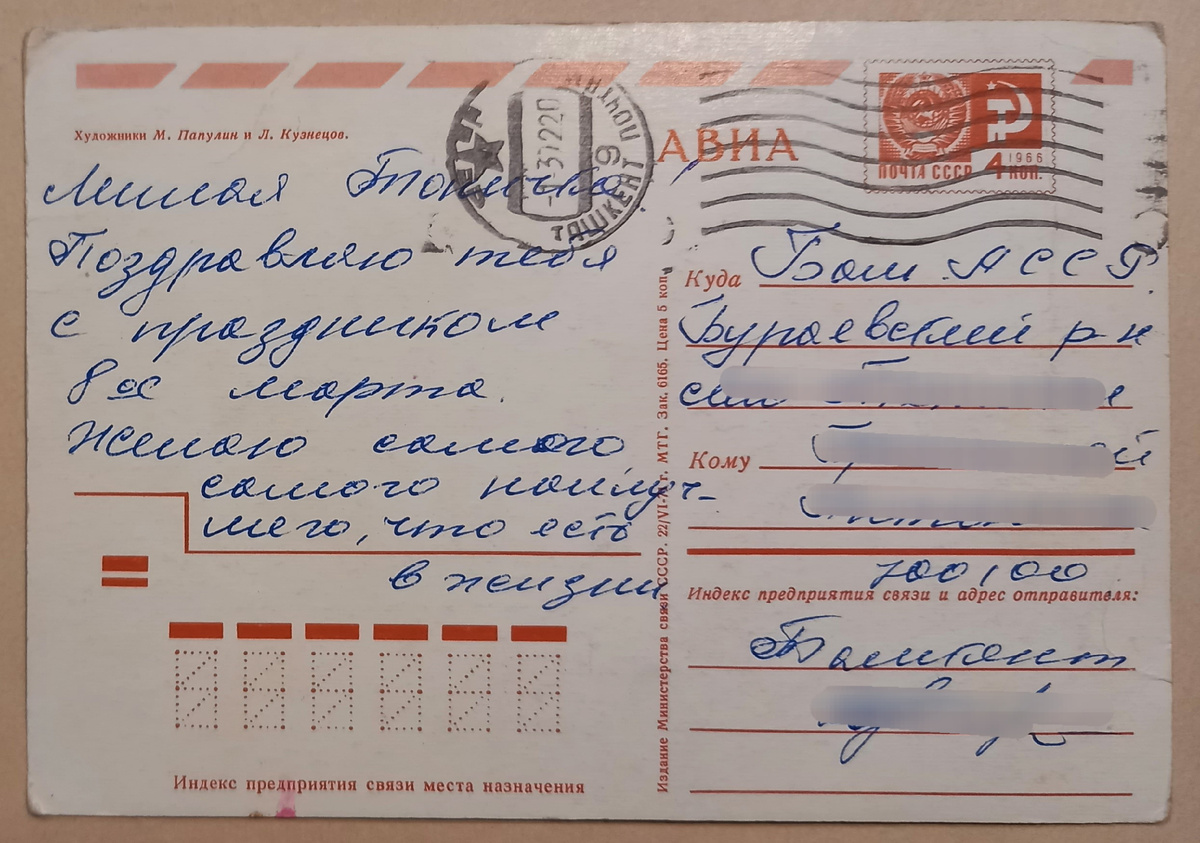 Художники М. Папулин и Л. Кузнецов.
АВИА
ПОЧТА
ТАШКЕНТ 9
ПОЧТА СССР
1966
4 КОП.
Милая Тонечка!
Поздравляю тебя
с праздником
8ое марта.
Желаю самого
самого наилуч-
шего, что есть
в жизни
Куда Баш АССР.
Бураевский р-н
Кому
700100
Индекс предприятия связи и адрес отправителя:
Ташкент
Издание Министерства связи СССР. 22/VI-71 г. МТГ. Зак. 6165. Цена 5 коп.
Индекс предприятия связи места назначения